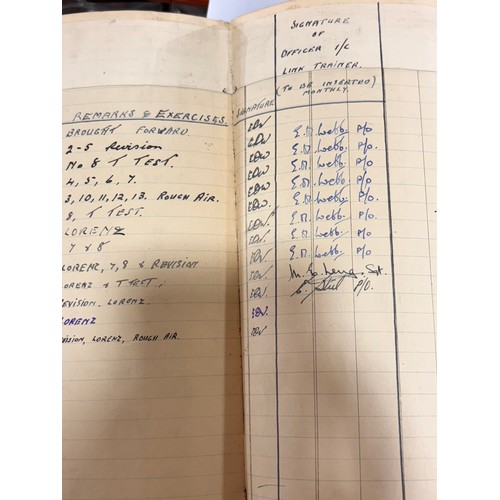 REMARKS & EXERCISES.
BROUGHT FORWARD
2-5 Revision
No 8 T TEST.
4, 5, 6, 7.
3, 10, 11, 12, 13. ROUGH AIR.
8, T TEST.
LORENZ
7 & 8
LORENZ, 7, 8 & REVISION
LORENZ & T TEST.
REVISION, LORENZ.
LORENZ
VISION, LORENZ, ROUGH AIR.
SIGNATURE
SIGNATURE
OF
OFFICER I/C
LINK TRAINER.
(TO BE INSERTED)
MONTHLY.
E.M. Webb P/O
E.M. Webb. P/O.
E.M. Webb P/O
E.M. Webb P/O
E.M. Webb. P/O.
E.M. Webb. P/O.
E.M. Webb. P/O
E.M. Webb P/O
P/O.